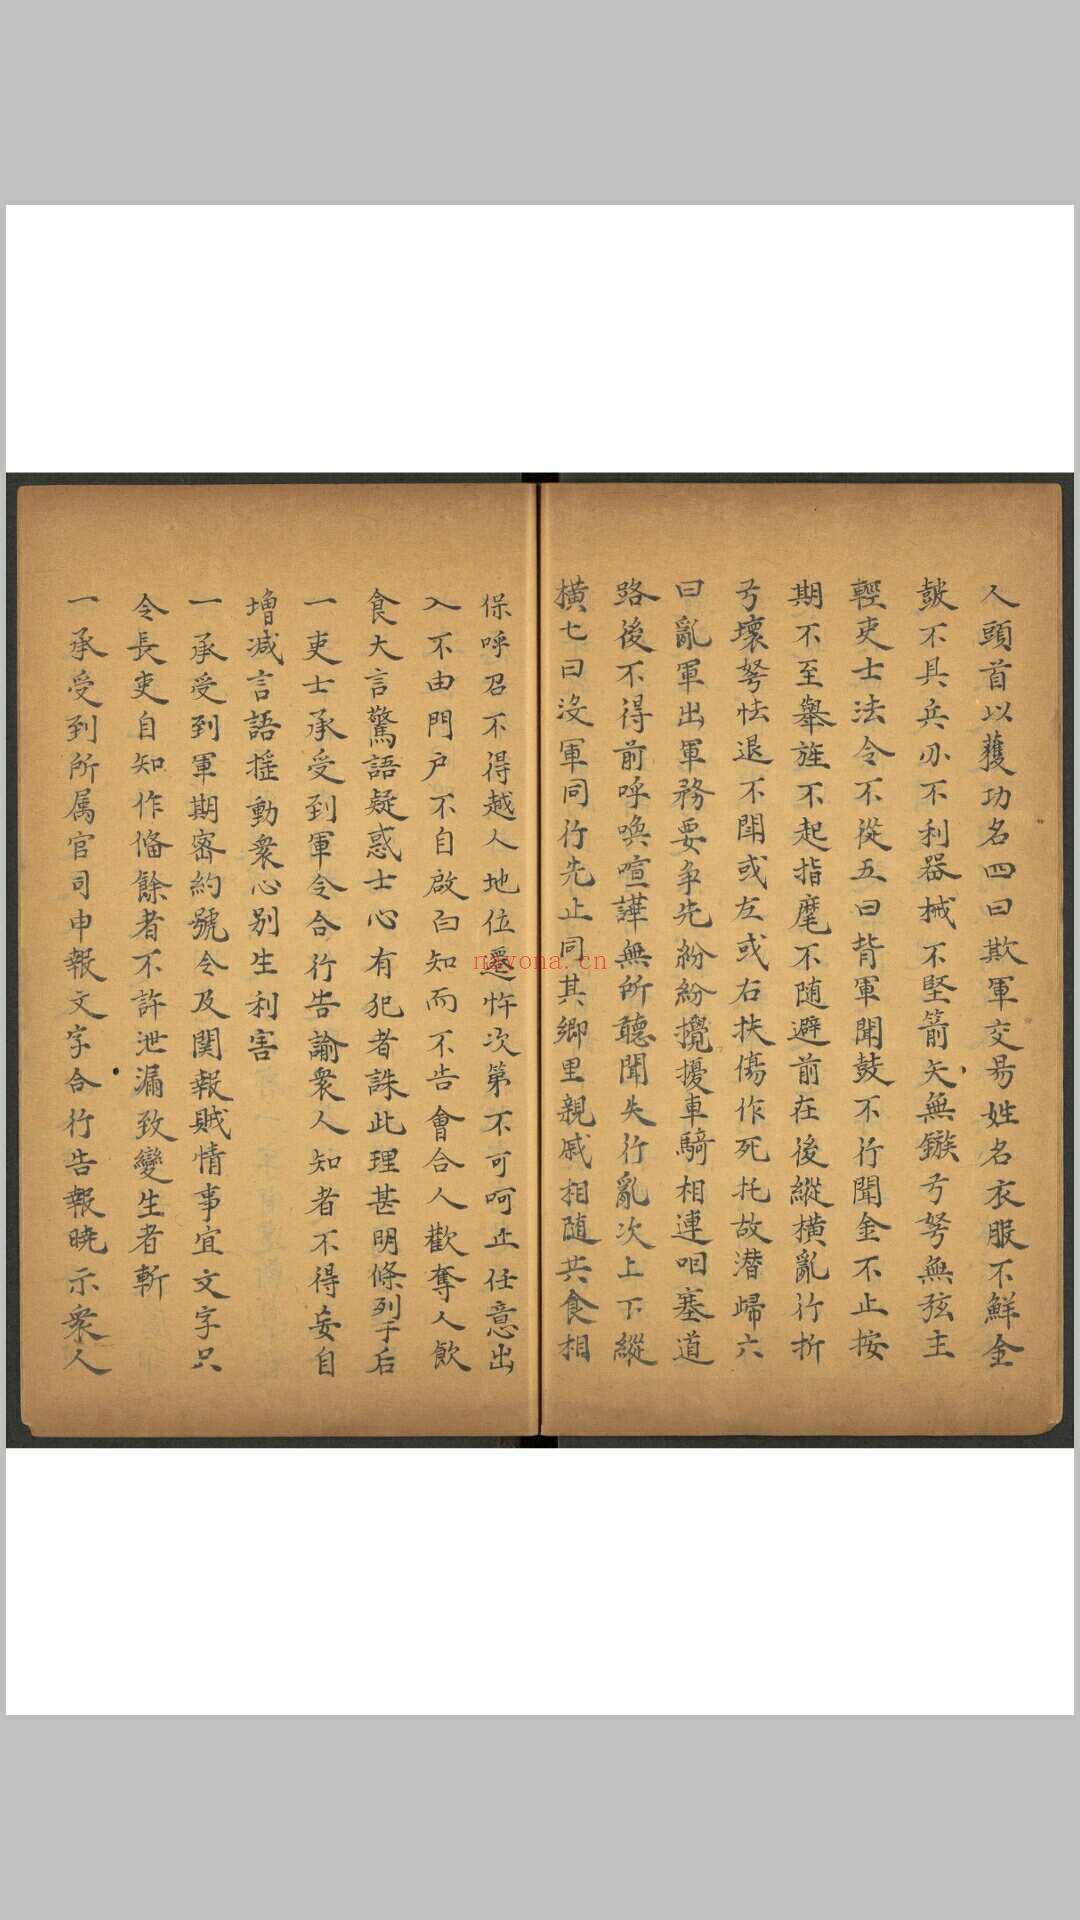 人頭首以獲功名四曰欺軍交易姓名衣服不鮮金
皷不具兵刃不利器械不堅箭矢無鏃弓弩無弦主
輕吏士法令不從五曰背軍聞鼓不行聞金不止按
期不至舉旌不起指麾不随避前在後縱横亂行折
弓壞弩怯退不聞或左或右扶傷作死托故潜歸六
曰亂軍出軍務要争先紛紛攪擾車騎相連咽塞道
路後不得前呼喚喧譁無所聽聞失行亂次上下縱
横七曰没軍同行先止同其鄉里親戚相随共食相
保呼召不得越人地位忤次第不可呵止任意出
入不由門户不自啟白知而不告會合人歡奪人飲
食大言驚語疑惑士心有犯者誅此理甚明條列于后
一吏士承受到軍令合行告諭衆人知者不得妄自
增减言語摇動衆心别生利害
一承受到軍期密約號令及関報賊情事宜文字只
令長吏自知作俻餘者不許泄漏致變生者斬
一承受到所属官司申報文字合行告報曉示衆人
nayona.cn